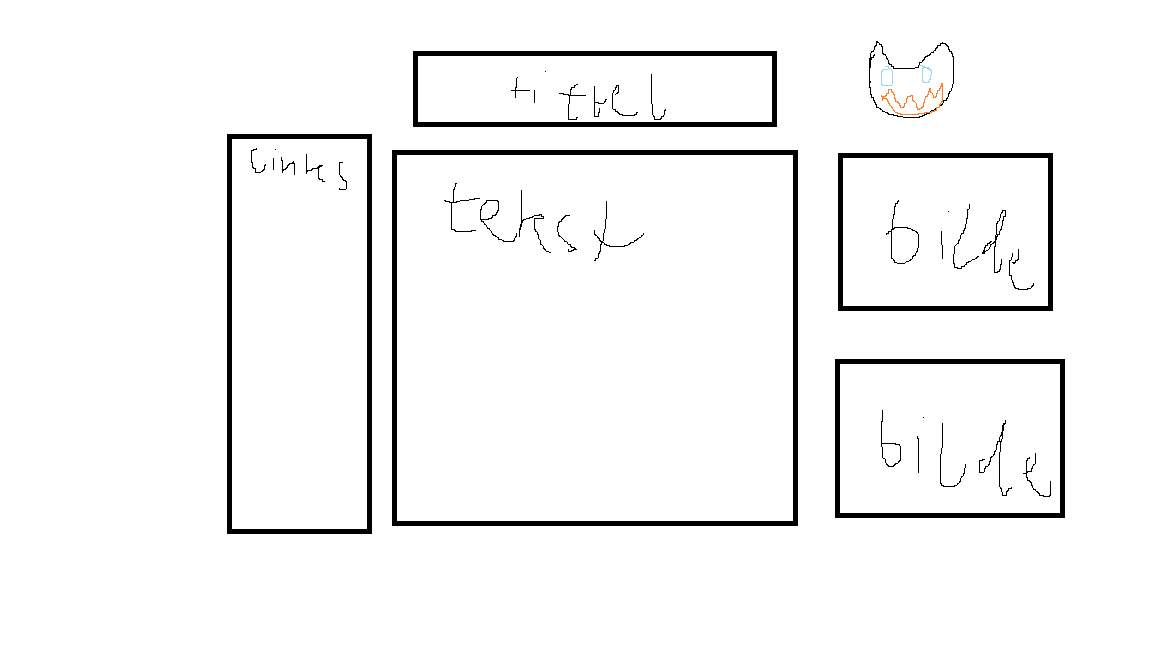 tittel
Links
tekst
bilde
bilde